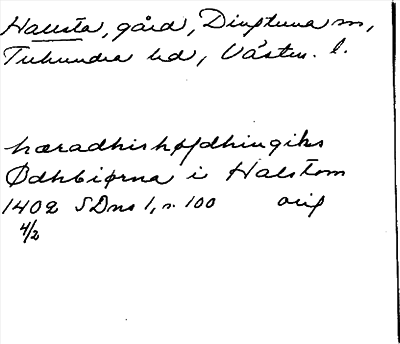 Hallsta, gård, Dingtuna sn,
Tuhundra hd, Västm. l.
hæradhishøfdhingiks
Ødhbiørna i Halstom
1402 SDns 1, s. 100 orig
4/2